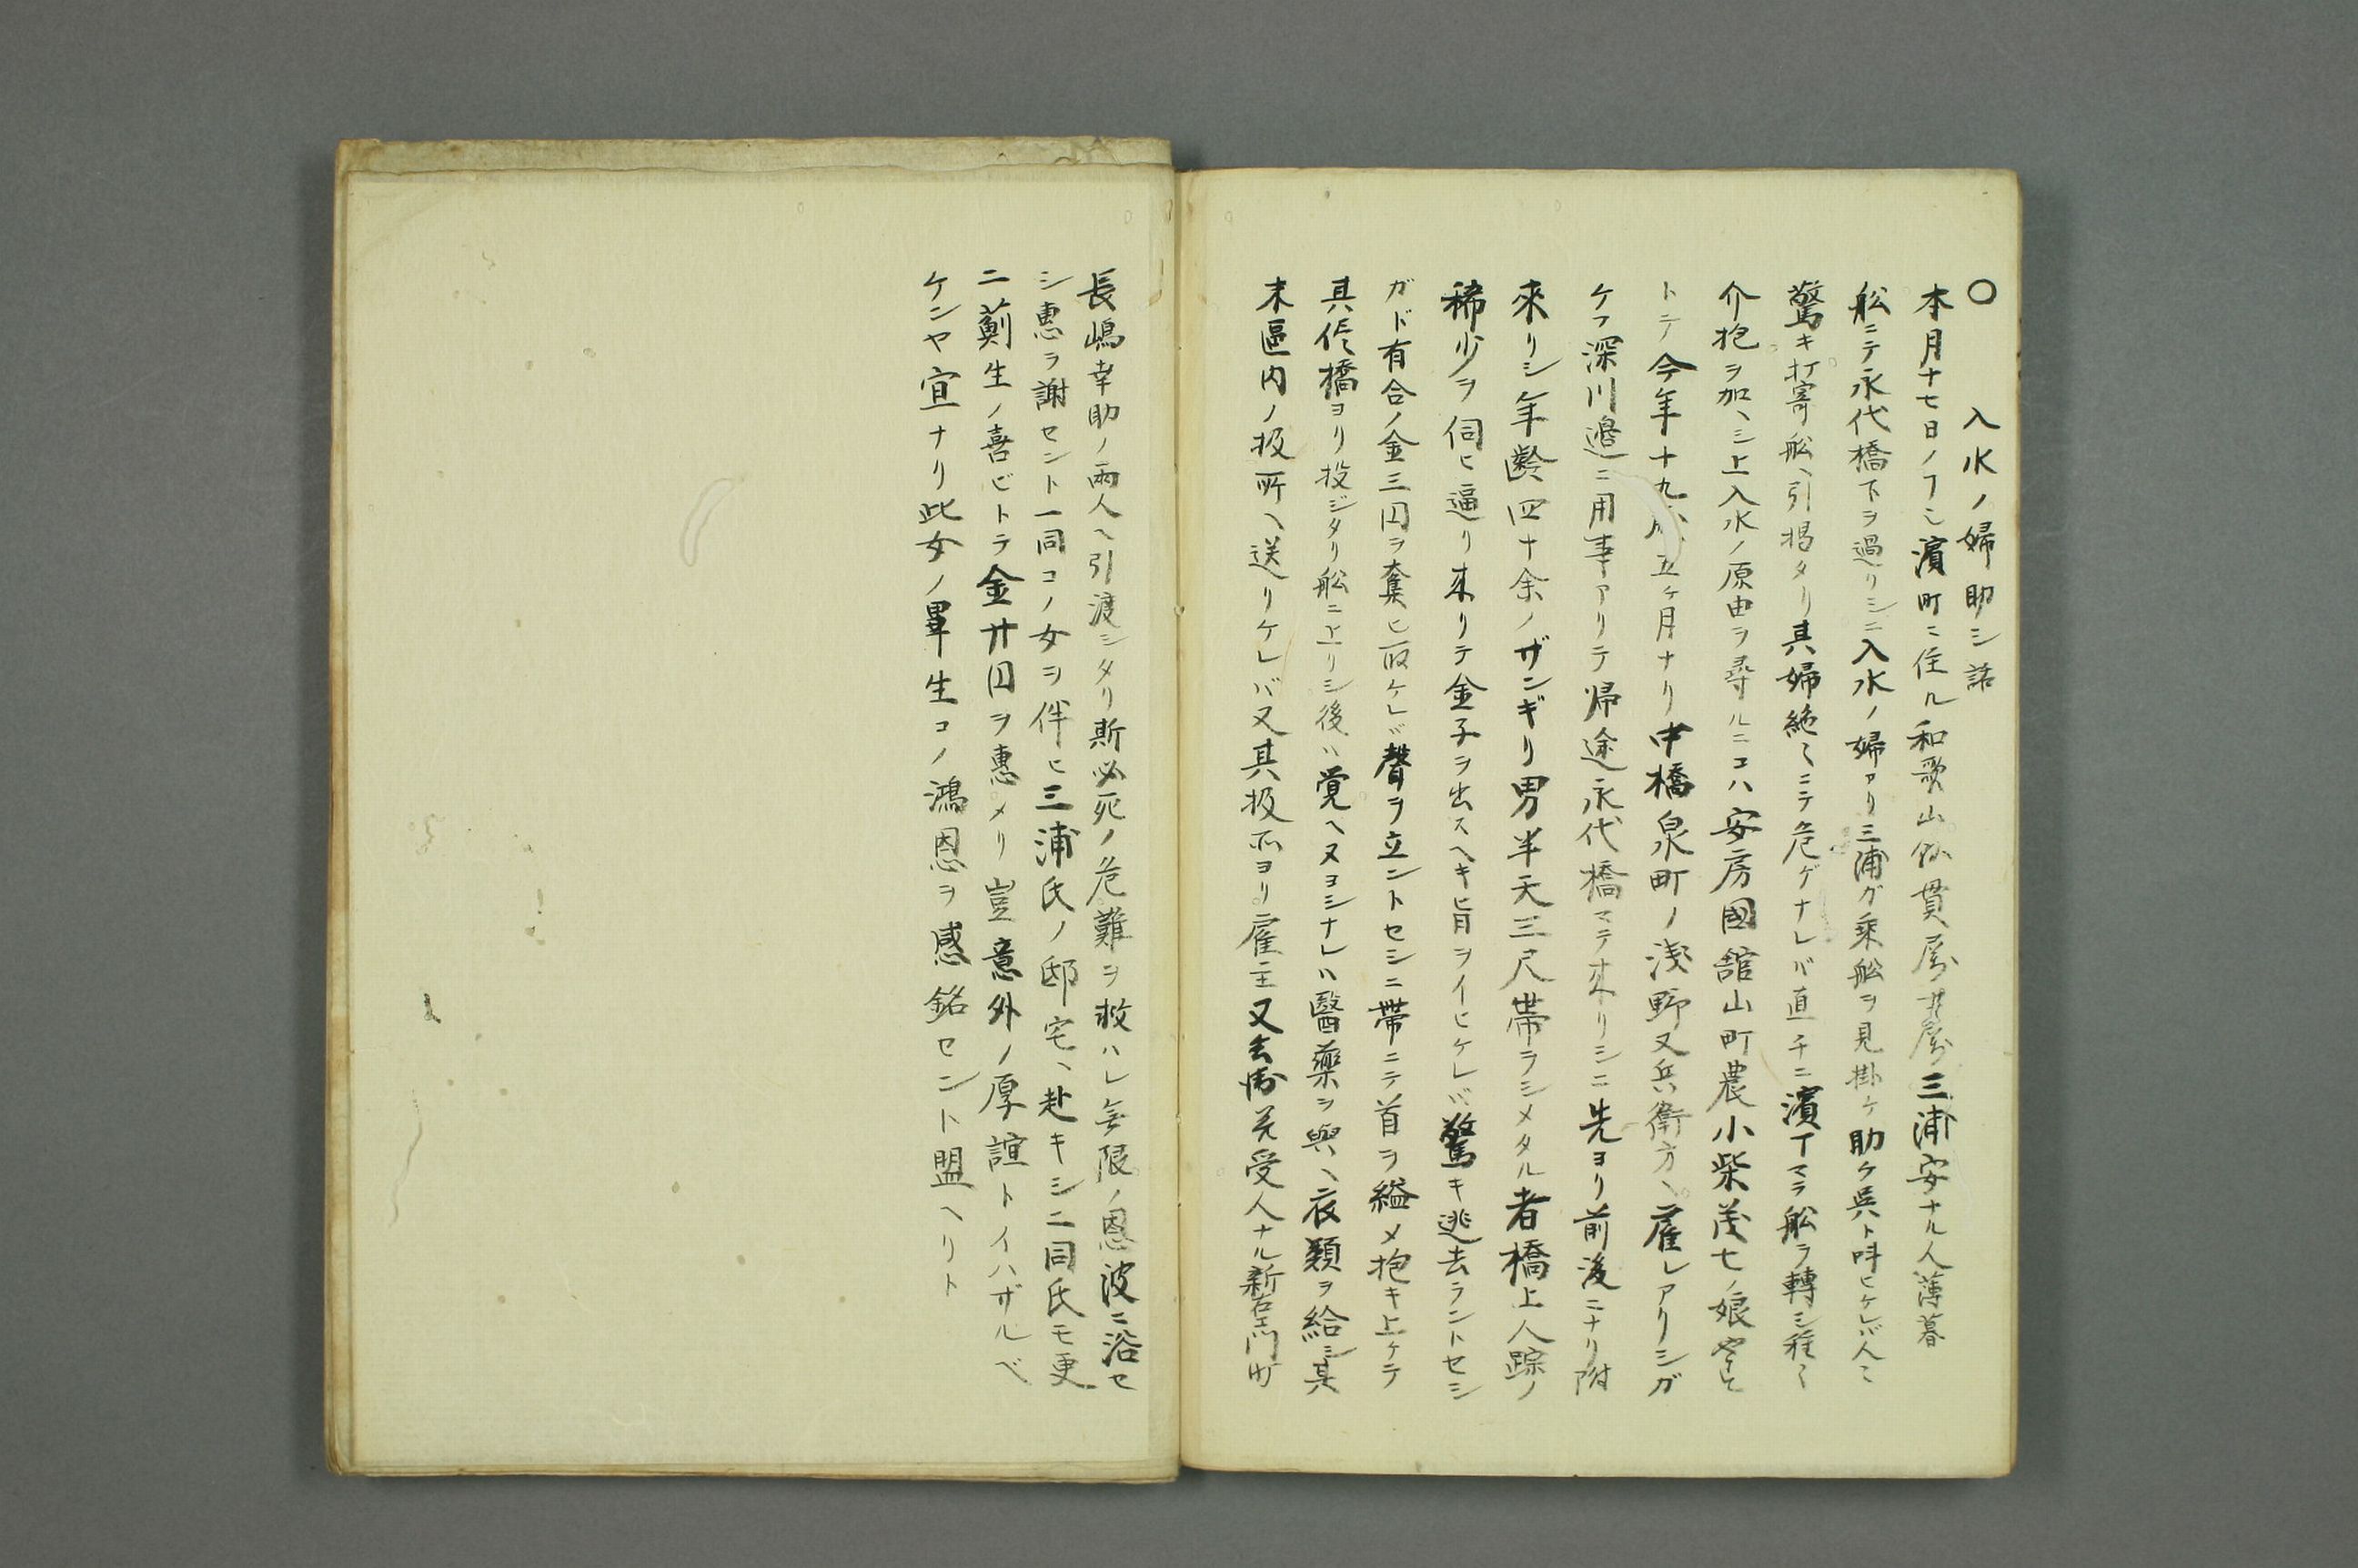 〇　入水ノ婦助シ話
本月十七日ノ丁濱町ニ住ル和歌山飯貫屋三浦安ナル人薄暮
舩ニテ永代橋下ヲ過リシニ入水ノ婦アリ三浦ガ乗舩ヲ見掛ケ助ケ呉ト呌ヒケレバ人ミ
驚キ打寄舩ヘ引揚タリ其婦絶〻ニテ危ゲナレバ直チニ濱丁マテ舩ヲ轉シ種〻
介抱ヲ加ヘシ上入水ノ原由ヲ尋ルニコハ安房國舘山町農小柴茂七ノ娘やす
トテ今年十九歳五ヶ月ナリ中橋泉町ノ浅野又兵衛方ヘ雇レアリシガ
ケフ深川邉ニ用事アリテ帰途永代橋マテ来リシニ先ヨリ前後ニナリ附
來リシ年齢四十余ノザンギリ男半天三尺帯ヲシメタル者橋上人踪ノ
稀少ヲ伺ヒ逼リ来リテ金子ヲ出スヘキ旨ヲイヒケレバ驚キ逃去ラントセシ
ガド有合ノ金三円ヲ奪ヒ取ケレバ聲ヲ立ントセシニ帯ニテ首ヲ縊メ抱キ上ケテ
其侭橋ヨリ投ジタリ舩ニ上リシ後ハ覚ヘヌヨシナレハ醫藥ヲ與ヘ衣類ヲ給シ其
末區内ノ扱所ヘ送リケレバ又其扱所ヨリ雇主又兵衛并受人ナル新右衛門町
長嶋幸助ノ兩人ヘ引渡シタリ斯必死ノ危難ヲ救ハレ無限ノ恩波ニ浴セ
シ惠ヲ謝セント一同コノ女ヲ伴ヒ三浦氏ノ邸宅ヘ赴キシニ同氏モ更
ニ蘇生ノ喜ビトテ金廿円ヲ惠メリ豈意外ノ厚誼トイハザルベ
ケンヤ宜ナリ此女ノ畢生コノ鴻恩ヲ感銘セント盟ヘリト